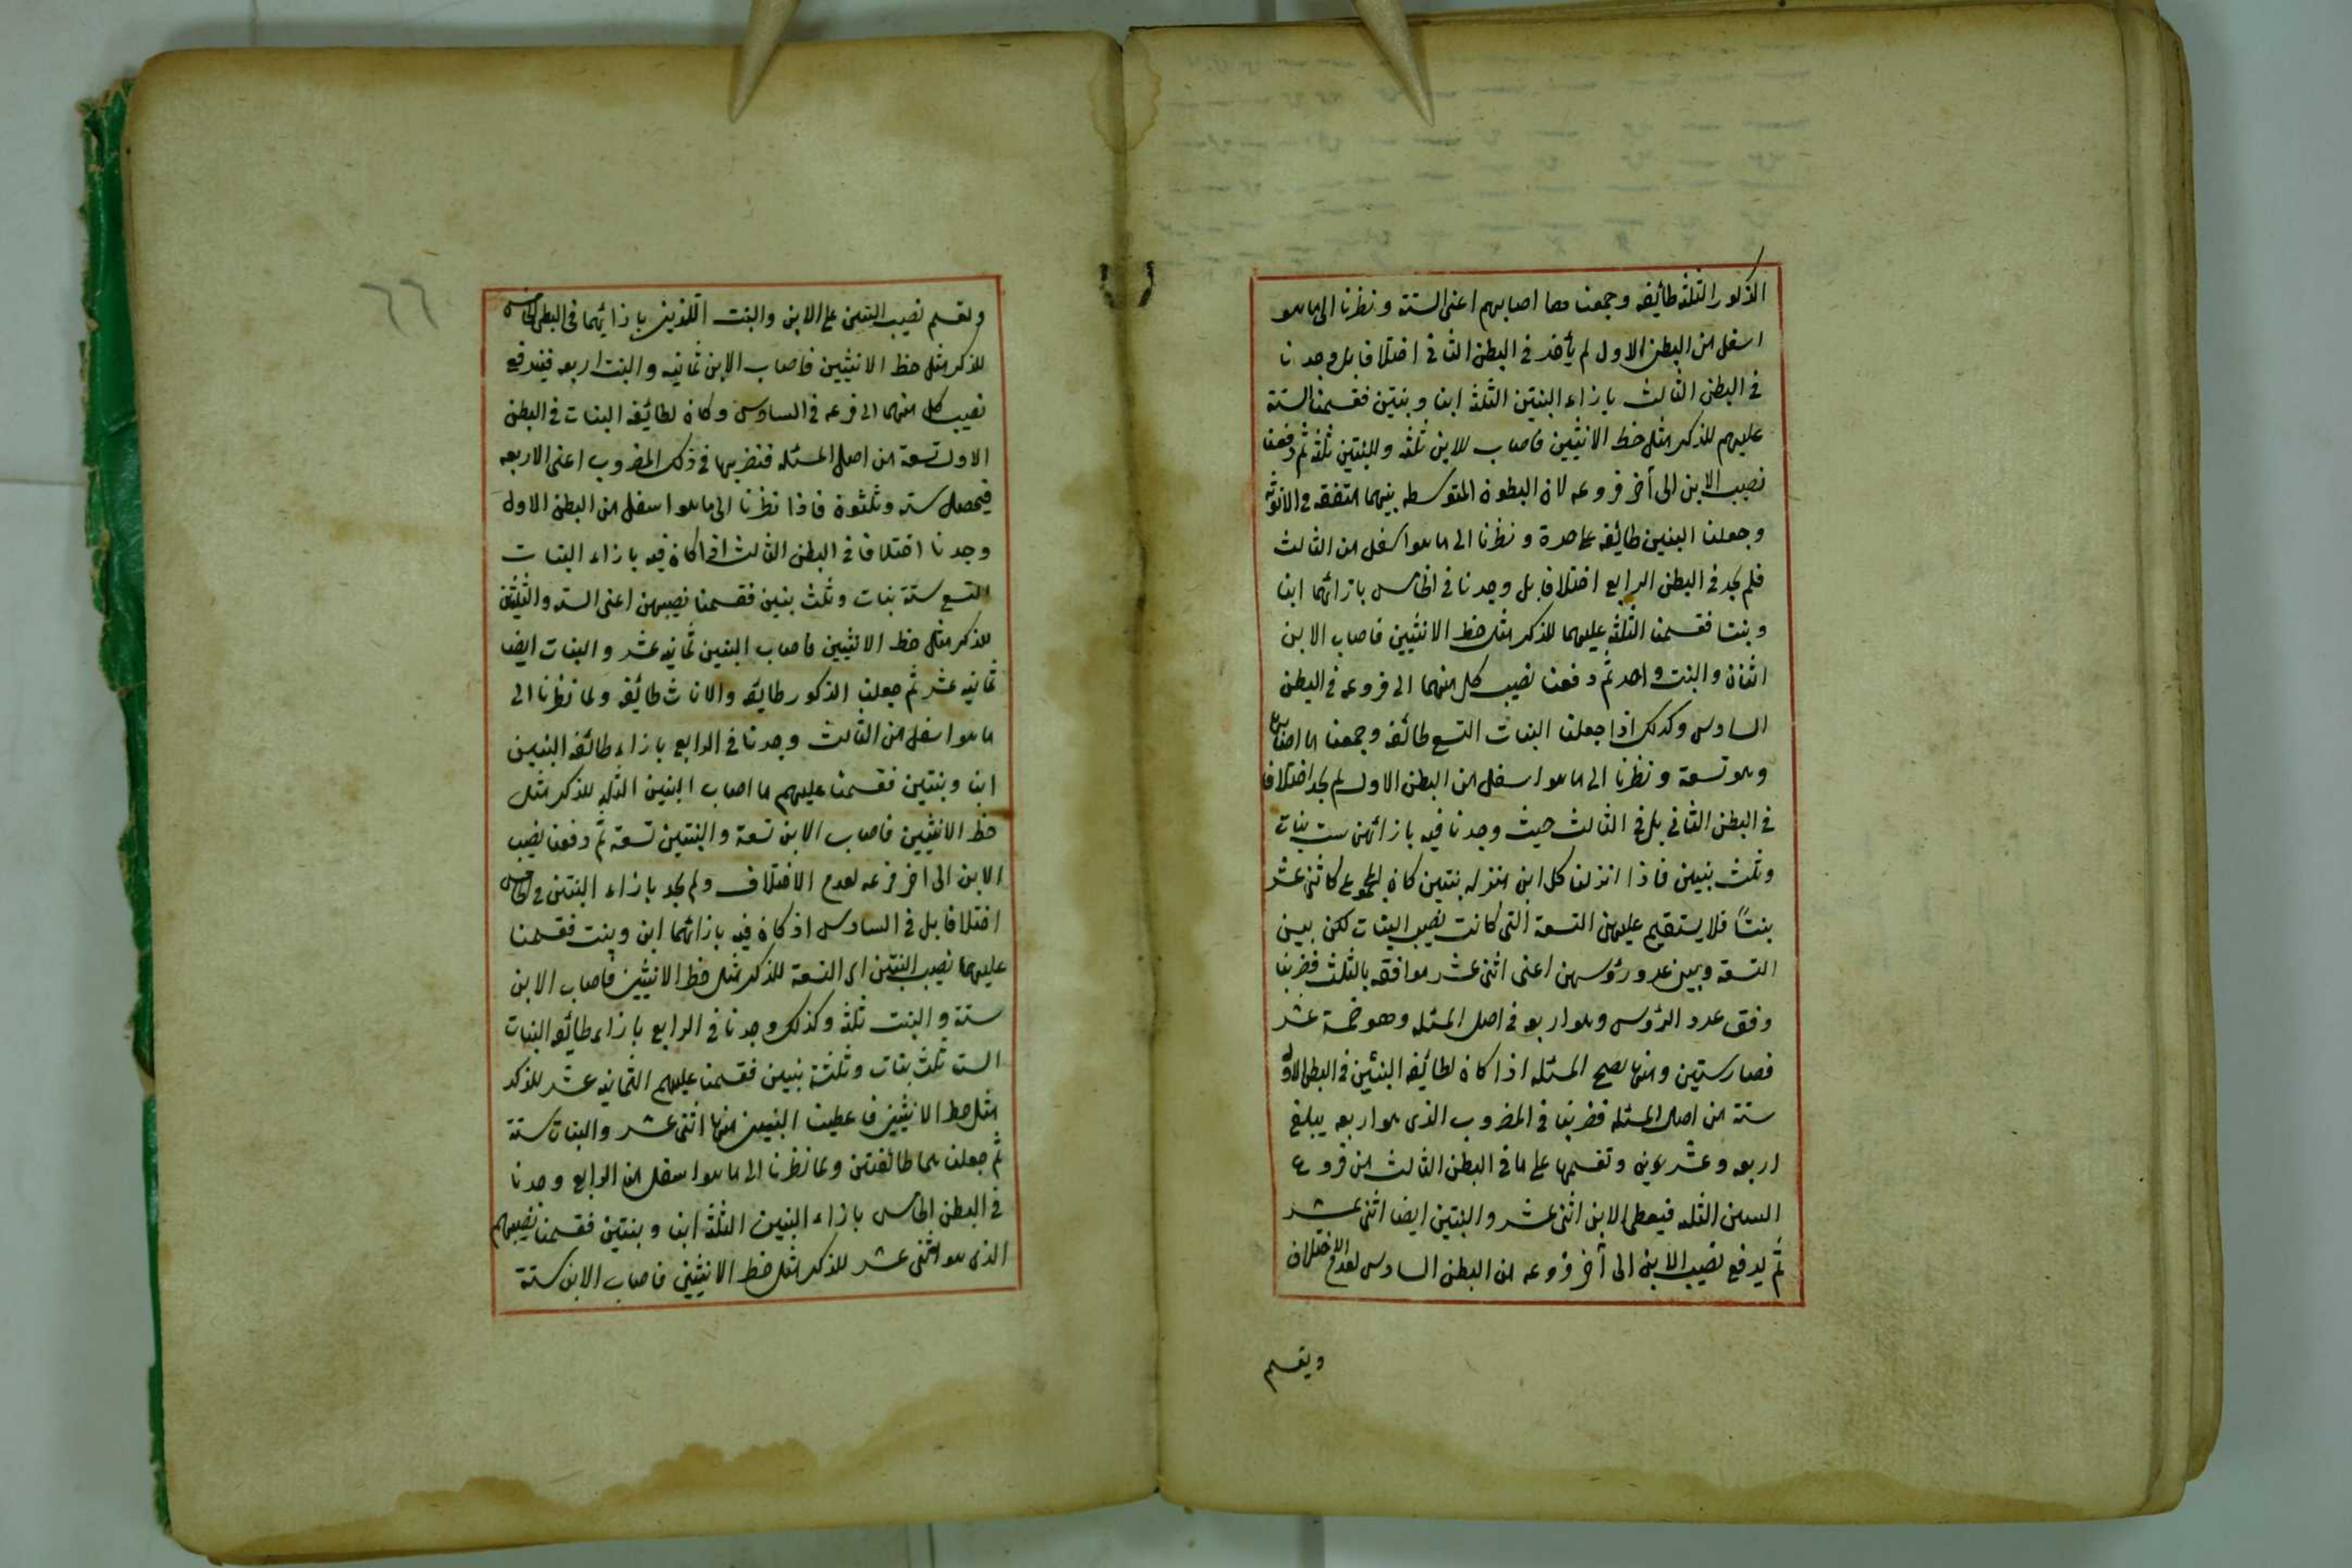 الذكور الثلثة طائفه وجمعنا ما اصابهم اعنى الستة ونظرنا الى ما هو
اسفل من البطن الاول لم يأخذ فى البطن الثانى اختلافا بل وجدنا
فى البطن الثالث بازاء البنتين الثلثة ابنا وبنتين فقسمنا الستة
عليهم للذكر مثل حظ الانثيين فاصاب للابن ثلثه وللبنتين ثلثة ثم دفعنا
نصيب الابن الى آخر فروعه لان البطون المتوسطه بينهما متفقه فى الانوثه
وجعلنا البنتين طائفه علاحدة ونظرنا الى ما هو اسفل من الثالث
فلم نجد فى البطن الرابع اختلافا بل وجدنا فى الخامس بازائهما ابنا
وبنتا فقسمنا الثلثه عليهما للذكر مثل حظ الانثيين فاصاب الابن
اثنان والبنت واحد ثم دفعنا نصيب كل منهما الى فروعه فى البطن
السادس وكذلك اذا جعلنا البنات التسع طائفه وجمعنا ما اصابهن
وهو تسعة ونظرنا الى ما هو اسفل من البطن الاول لم نجد اختلافا
فى البطن الثانى بل فى الثالث حيث وجدنا فيه بازائهن ست بنات
وثلث بنين فاذا انزلنا كل ابن منزله بنتين كان المجموع كاثنى عشر
بنتاً فلا يستقيم عليهن التسعة التى كانت نصيب البنات لكن بين
التسعة وبين عدد رؤسهن اعنى اثنى عشر موافقه بالثلث فضربنا
وفق عدد الرؤس وهو اربعه فى اصل المسئله وهو خمسة عشر
فصار ستين ومنها تصح المسئله اذا كان لطائفه البنين فى البطن الاول
ستة من اصل المسئله فضربنا فى المضروب الذى هو اربعه يبلغ
اربعه وعشرين وتقسمها على ما فى البطن الثالث من فروع
البنين الثلثه فيعطى الابن اثنى عشر والبنتين ايضا اثنى عشر
ثم يدفع نصيب الابن الى آخر فروعه من البطن السادس لعدم الاختلاف
ويقسم
٦٦
ويقسم نصيب البنتين على الابن والبنت اللذين بازائهما فى البطن الخامس
للذكر مثل حظ الانثيين فاصاب الابن ثمانيه والبنت اربعه فيدفع
نصيب كل منهما الى فرعه فى السادس وكان لطائفه البنات فى البطن
الاول تسعة من اصل المسئله فنضربها فى ذلك المضروب اعنى الاربعه
فيحصل سته وثلثون فاذا نظرنا الى ما هو اسفل من البطن الاول
وجدنا اختلافا فى البطن الثالث اذ كان فيه بازاء البنات
التسع ستة بنات وثلث بنين فقسمنا نصيبهن اعنى الستة والثلثين
للذكر مثل حظ الانثيين فاصاب البنين ثمانيه عشر والبنات ايضا
ثمانيه عشر ثم جعلنا الذكور طايفه والاناث طائفه ولما نظرنا الى
ما هو اسفل من الثالث وجدنا فى الرابع بازاء طائفه البنين
ابنا وبنتين فقسمنا عليهم ما اصاب البنين الثلثه للذكر مثل
حظ الانثيين فاصاب الابن تسعة والبنتين تسعة ثم دفعنا نصيب
الابن الى اخر فرعه لعدم الاختلاف ولم نجد بازاء البنتين فى الخامس
اختلافا بل فى السادس اذ كان فيه بازائهما ابن وبنت فقسمنا
عليهما نصيب البنتين اى التسعة للذكر مثل حظ الانثيين فاصاب الابن
ستة والبنت ثلثه وكذلك وجدنا فى الرابع بازاء طائفه البنات
الست ثلث بنات وثلثة بنين فقسمنا عليهم الثمانيه عشر للذكر
مثل حظ الانثيين فاعطينا البنين منها اثنى عشر والبنات ستة
ثم جعلناهما طائفتين ولما نظرنا الى ما هو اسفل من الرابع وجدنا
فى البطن الخامس بازاء البنين الثلثة ابنا وبنتين فقسمنا نصيبهم
الذى هو اثنى عشر للذكر مثل حظ الانثيين فاصاب الابن ستة